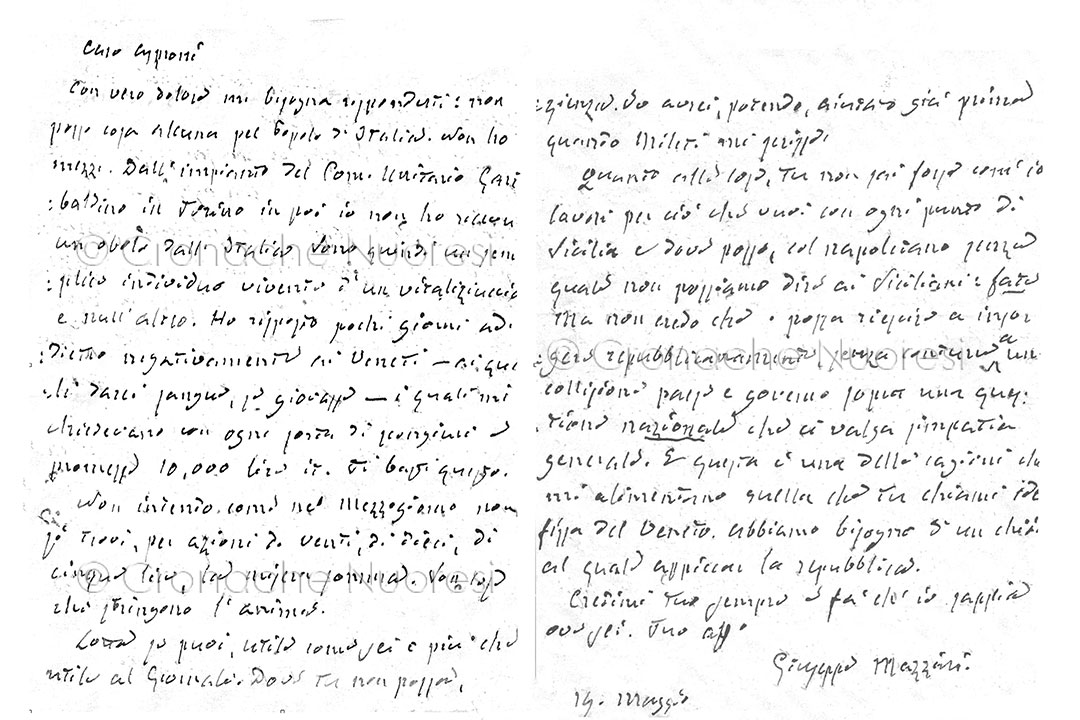 Caro Asproni
Con vero dolore mi bisogna risponderti: non
posso cosa alcuna pel Popolo d'Italia. Non ho
mezzi. Dall'impianto del Com. Unitario Gari
baldino in Torino in poi io non ho ricevu
un obolo dall'Italia. Sono quindi un sem
plice individuo vivente d'un vitaliziuccio
e null'altro. Ho risposto pochi giorni ad
dietro negativamente ai Veneti — ai qua
li darei sangue, se giovasse — i quali mi
chiedevano con ogni sorta di scongiuri e
promesse 10,000 lire it. Ti basti questo.
Non intendo come nel Mezzogiorno non
si trovi, per azioni di venti, di dieci, di
cinque lire, la misera somma. Son cose
che stringono l'anima.
Lotta se puoi, utile come sei e più che
utile al Giornale. Dove tu non possa,
Io avrei, potendo, aiutato già prima
quando Mileti mi scrisse.
Quanto alla cosa, tu non sai forse com'io
lavori per ciò che vuoi con ogni punto di
Sicilia e dove posso, col napoletano senza
quale non possiamo dire ai Siciliani: fate
Ma non credo che si possa riescire a insor
gere repubblicanamente, senza a un
collisione paese e governo sopra una ques
tione nazionale che ci valga simpatia
generale. E questa è una delle cagioni che
mi alimentano quella che tu chiami ide
fissa del Veneto. Abbiamo bisogno d'un chio
al quale appiccar la repubblica.
Credimi tuo sempre e fa ch'io sappia
ove sei. Tuo aff.o
Giuseppe Mazzini.
19. Maggio
© Cronache Nuoresi
© Cronache Nuoresi
© Cronache Nuoresi